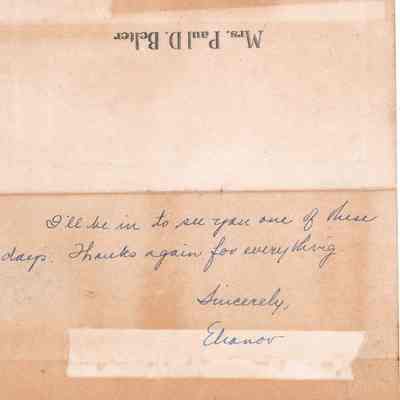 Mrs. Paul D. Belter
I'll be in to see you one of these
days. Thanks again for everything
Sincerely,
Eleanor